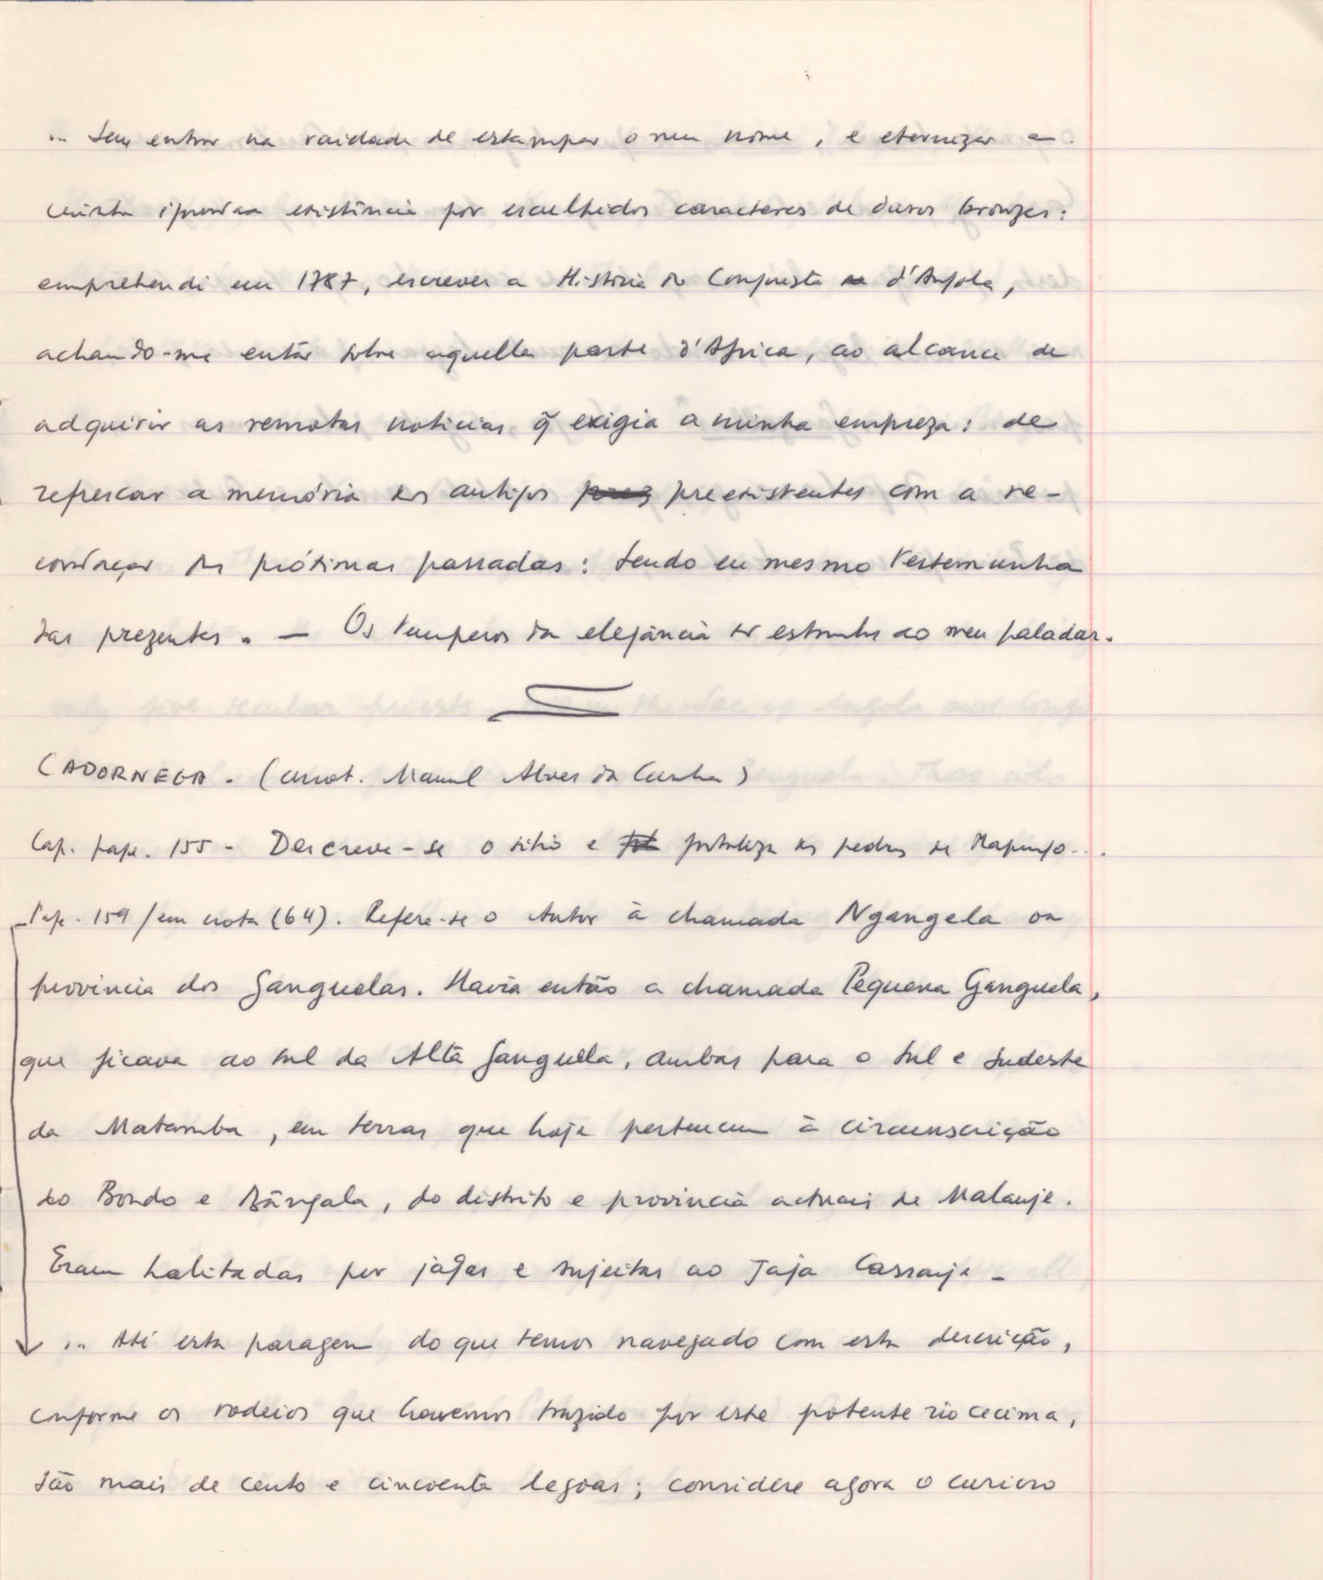 ... Sem entrar na vaidade de estampar o meu nome, e eternizar a
minha ignorada existência por esculpidos caracteres de duros bronzes:
emprehendi em 1787, escrever a História da Conquista d'Angola,
achando-me então sobre aquella parte d'Africa, ao alcance de
adquirir as remotas noticias q̃ exigia a minha empreza: de
refrescar a memória dos antigos preexistentes com a re-
cordação das próximas passadas: sendo eu mesmo testemunha
das prezentes. — Os temperos da elegância são estranhos ao meu paladar.
CADORNEGA - (anot. Manuel Alves da Cunha)
Cap. pag. 155 - Descreve-se o sitio e fortaleza das pedras de Mapungo...
Pag. 159 / em nota (64). Refere-se o Autor à chamada Ngangela ou
provincia dos Ganguelas. Havia então a chamada Pequena Ganguela,
que ficava ao sul da Alta Ganguella, ambas para o Sul e Sudeste
da Matamba, em terras que hoje pertencem à circunscrição
do Bondo e Bângala, do distrito e provincia actuais de Malanje.
Eram habitadas por jagas e sujeitas ao Jaga Cassanje -
... Até esta paragem do que temos navegado com esta descrição,
conforme os rodeios que havemos trazido por este potente rio cecima,
são mais de cento e cincoenta legoas; considere agora o curioso